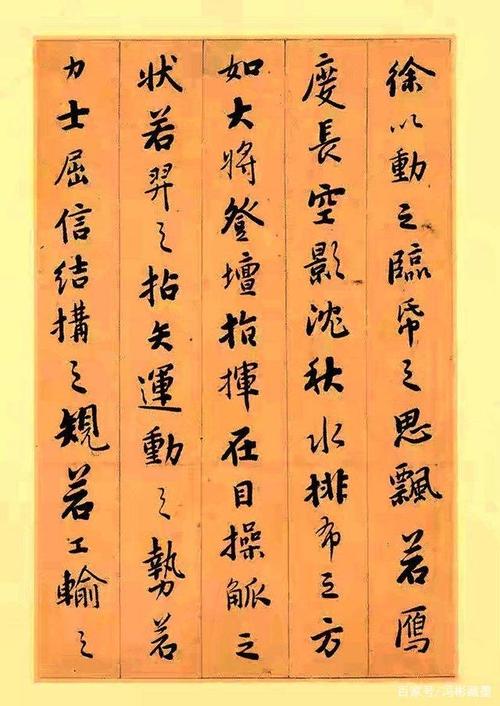 徐以動之臨帋之思飄若鴈
度長空影沈秋水排布之方
如大將登壇指揮在目操觚之
狀若羿之拈矢運動之埶若
力士屈信結構之規若工輸之
百家号/冯彬藏墨